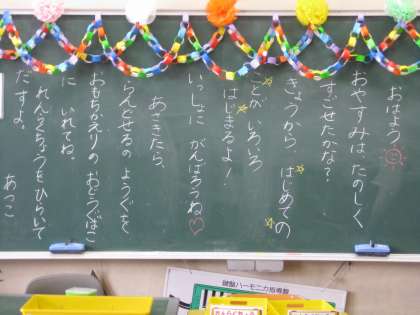 おはよう
おやすみは、たのしく
すごせたかな?
きょうから、はじめての
ことが いろいろ
はじまるよ!
いっしょに がんばろうね
あさきたら、
らんどせるの ようぐを
おもちかえりの おどうぐばこ
に いれてね。
れんらくちょうを ひらいて
だすよ。
あつこ
鍵盤ハーモニカの指導盤